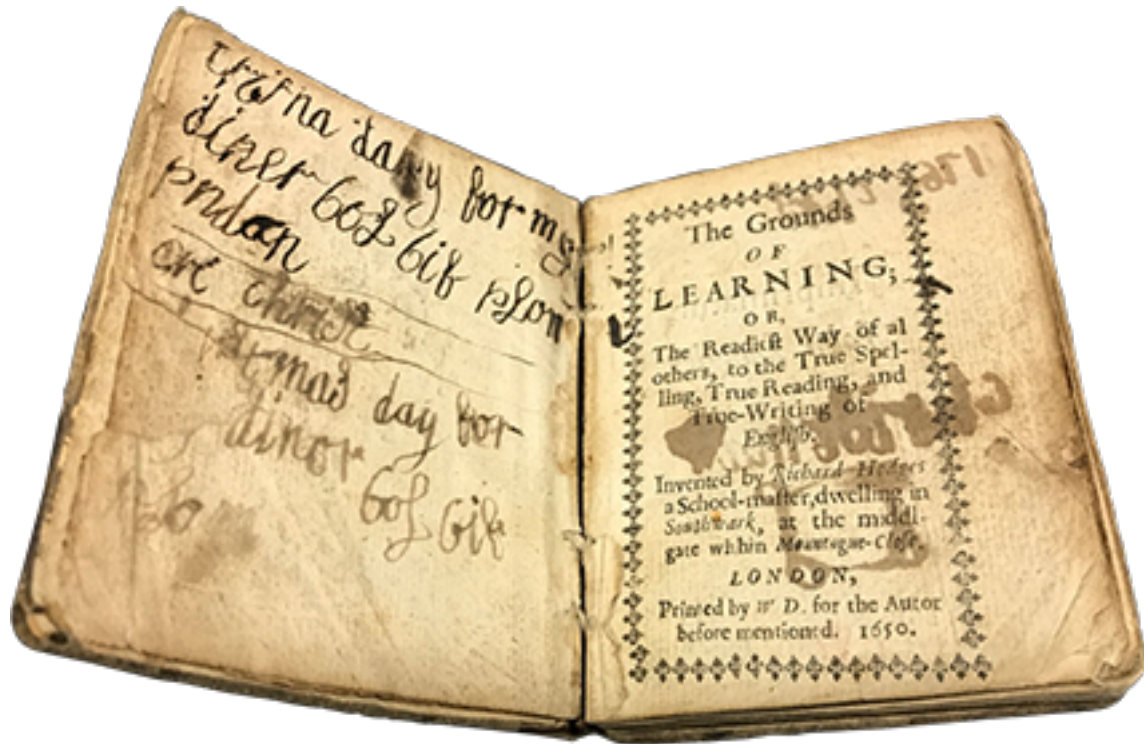 day for my
diner bof bif plom
pndan
christ
mas day for
dinor bof bif
The Grounds
OF
LEARNING;
OR,
The Readieſt Way of al
others, to the True Spel-
ling, True Reading, and
True-Writing of
Engliſh.
Invented by Richard Hodges
a School-maſter, dwelling in
Southwark, at the middl-
gate within Mountague-Cloſe.
LONDON,
Printed by W D. for the Autor
before mentioned. 1650.